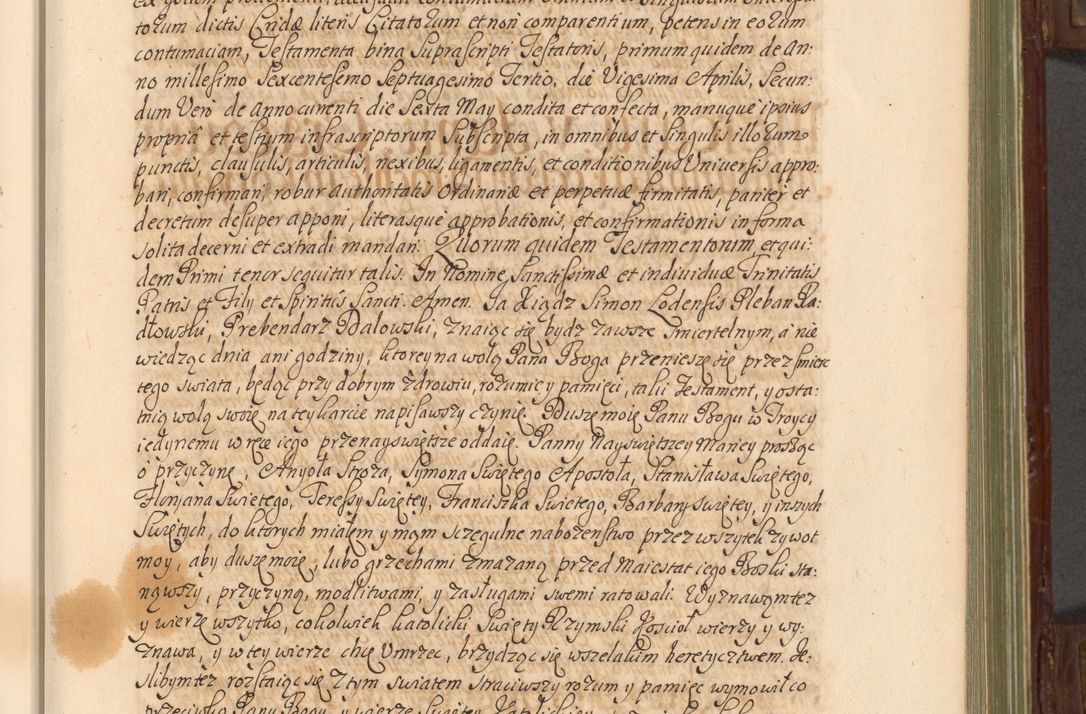 torum dictis Endæ literis Citatorum et non comparentium, petens in eorum
contumaciam, Testamenta bina suprascripti Testatoris, primum quidem de An:
no millesimo Sexcentesimo Septuagesimo Tertio, die Vigesima Aprilis, Secun:
dum Vero de Anno currenti die Sexta May condita et confecta, manuque ipsius
propriâ et testium infrascriptorum Subscripta, in omnibus et Singulis illorum
punctis, clausulis, articulis, nexibus, ligamentis, et conditionibus Universis appro:
bari, confirmari, robur authoritatis Ordinariæ et perpetuæ firmitatis, pariter et
decretum desuper apponi, literasque approbationis, et confirmationis in forma
solita decerni et extradi mandari. Quorum quidem Testamentorum, et qui:
dem Primi tenor sequitur talis. In Nomine Sanctissimæ et individuæ Trinitatis
Patris et Fily et Spiritûs Sancti. Amen. Ja Xiądz Simon Lodensis Pleban Ra:
dłowski, Prebendarz Bdalowski, znaiąc się bydz zawsze smiertelnym, a nie
wiedząc dnia ani godziny, ktorey na wolą Pana Boga przeniesze się przez smierc
tego swiata, będąc przy dobrym zdrowiu, rozumie y pamięci, taki Testament, y osta:
tnią wolą swoię na tey karcie napisawszy czynię. Duszę moię Panu Bogu w Troycy
iedynemu w ręce iego przenayswiętsze oddaię. Panny Nayswiętszey Maryey prosząc
o przyczynę, Anyoła Stroża, Symona Swiętego Apostoła, Stanisława Swiętego,
Floryana Swietego, Teressy Swiętey, Franciszka Swietego, Barbary swiętey, y inszych
Swiętych, do ktorych miałem y mam sczegulne nabożenstwo przez wszytek zywot
moy, aby duszę moię, lubo grzechami zmazaną przed Maiestat iego Boski sta:
nąwszy, przyczyną, modlitwami, y zasługami swemi ratowali. Wyznawam tez
y wierzę wszytko, cokolwiek katolicki Swięty Rzymski Kosciół wierzy y wy:
znawa, y w tey wierze chcę Umrzec, brzydząc się wszelakim heretyctwem. Je:
slibym tez rozstaiąc się z tym swiatem straciwszy rozum y pamięc wymowił co
przeciwko Panu Bogu, y wierze Swiętey